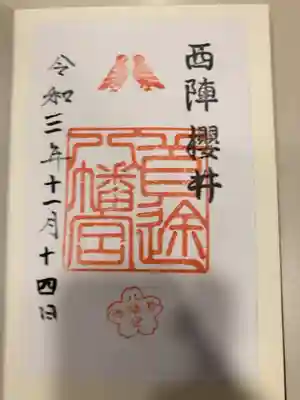 西陣櫻井
首途
八幡宮
令和三年十一月十四日